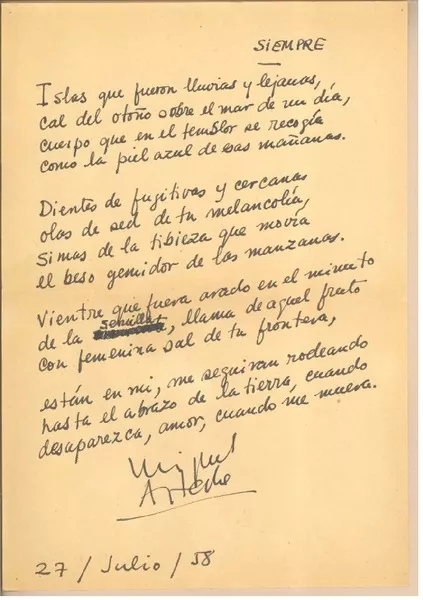 SIEMPRE
Islas que fueron lluvias y lejanas,
cal del otoño sobre el mar de un día,
cuerpo que en el temblor se recogía
como la piel azul de esas mañanas.
Dientes de fugitivas y cercanas
olas de sed de tu melancolía,
simas de la tibieza que movía
el beso gemidor de las manzanas.
Vientre que fuera arado en el minuto
de la semilla, llama de aquel fruto
con femenina sal de tu frontera,
están en mi, me seguiran rodeando
hasta el abrazo de la tierra, cuando
desaparezca, amor, cuando me muera.
Miguel
Arteche
27 / Julio / 58